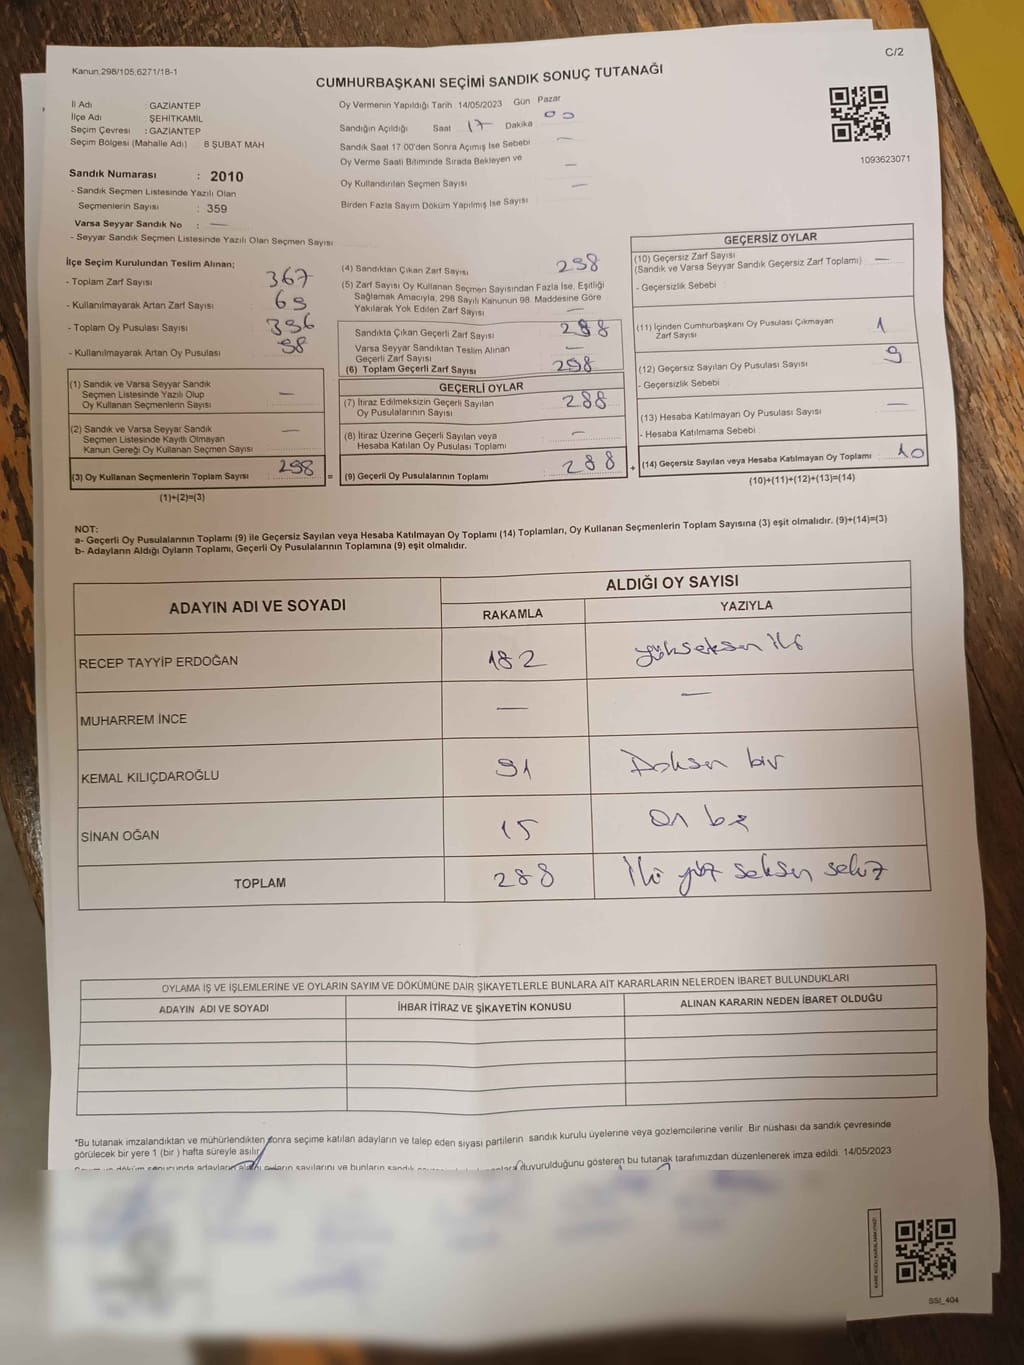 C/2
Kanun,298/105,6271/18-1
CUMHURBAŞKANI SEÇİMİ SANDIK SONUÇ TUTANAĞI
İl Adı : GAZIANTEP
İlçe Adı : ŞEHİTKAMİL
Seçim Çevresi : GAZIANTEP
Seçim Bölgesi (Mahalle Adı) : 8 ŞUBAT MAH
Sandık Numarası : 2010
- Sandık Seçmen Listesinde Yazılı Olan
Seçmenlerin Sayısı : 359
Varsa Seyyar Sandık No : —
- Seyyar Sandık Seçmen Listesinde Yazılı Olan Seçmen Sayısı
Oy Vermenin Yapıldığı Tarih :14/05/2023 Gün Pazar
Sandığın Açıldığı Saat 17 Dakika 00
Sandık Saat 17:00'den Sonra Açımış İse Sebebi —
Oy Verme Saati Bitiminde Sırada Bekleyen ve —
Oy Kullandırılan Seçmen Sayısı —
Birden Fazla Sayım Döküm Yapılmış İse Sayısı
1093623071
İlçe Seçim Kurulundan Teslim Alınan;
- Toplam Zarf Sayısı 367
- Kullanılmayarak Artan Zarf Sayısı 69
- Toplam Oy Pusulası Sayısı 396
- Kullanılmayarak Artan Oy Pusulası 98
(1) Sandık ve Varsa Seyyar Sandık
Seçmen Listesinde Yazılı Olup
Oy Kullanan Seçmenlerin Sayısı —
(2) Sandık ve Varsa Seyyar Sandık
Seçmen Listesinde Kayıtlı Olmayan
Kanun Gereği Oy Kullanan Seçmen Sayısı —
(3) Oy Kullanan Seçmenlerin Toplam Sayısı 298
(1)+(2)=(3)
=
(4) Sandıktan Çıkan Zarf Sayısı 298
(5) Zarf Sayısı Oy Kullanan Seçmen Sayısından Fazla İse, Eşitliği
Sağlamak Amacıyla, 298 Sayılı Kanunun 98. Maddesine Göre
Yakılarak Yok Edilen Zarf Sayısı —
Sandıkta Çıkan Geçerli Zarf Sayısı 298
Varsa Seyyar Sandıktan Teslim Alınan
Geçerli Zarf Sayısı —
(6) Toplam Geçerli Zarf Sayısı 298
GEÇERLİ OYLAR
(7) İtiraz Edilmeksizin Geçerli Sayılan
Oy Pusulalarının Sayısı 288
(8) İtiraz Üzerine Geçerli Sayılan veya
Hesaba Katılan Oy Pusulası Toplamı —
(9) Geçerli Oy Pusulalarının Toplamı 288
+
GEÇERSİZ OYLAR
(10) Geçersiz Zarf Sayısı
(Sandık ve Varsa Seyyar Sandık Geçersiz Zarf Toplamı) —
- Geçersizlik Sebebi :
(11) İçinden Cumhurbaşkanı Oy Pusulası Çıkmayan
Zarf Sayısı 1
(12) Geçersiz Sayılan Oy Pusulası Sayısı 9
- Geçersizlik Sebebi :
(13) Hesaba Katılmayan Oy Pusulası Sayısı —
- Hesaba Katılmama Sebebi :
(14) Geçersiz Sayılan veya Hesaba Katılmayan Oy Toplamı 10
(10)+(11)+(12)+(13)=(14)
NOT:
a- Geçerli Oy Pusulalarının Toplamı (9) ile Geçersiz Sayılan veya Hesaba Katılmayan Oy Toplamı (14) Toplamları, Oy Kullanan Seçmenlerin Toplam Sayısına (3) eşit olmalıdır. (9)+(14)=(3)
b- Adayların Aldığı Oyların Toplamı, Geçerli Oy Pusulalarının Toplamına (9) eşit olmalıdır.
ADAYIN ADI VE SOYADI
ALDIĞI OY SAYISI
RAKAMLA YAZIYLA
RECEP TAYYİP ERDOĞAN 182 yükseksen iki
MUHARREM İNCE — —
KEMAL KILIÇDAROĞLU 91 Doksan bir
SİNAN OĞAN 15 On beş
TOPLAM 288 İki yüz seksen sekiz
OYLAMA İŞ VE İŞLEMLERİNE VE OYLARIN SAYIM VE DÖKÜMÜNE DAİR ŞİKAYETLERLE BUNLARA AİT KARARLARIN NELERDEN İBARET BULUNDUKLARI
ADAYIN ADI VE SOYADI İHBAR İTİRAZ VE ŞİKAYETİN KONUSU ALINAN KARARIN NEDEN İBARET OLDUĞU
*Bu tutanak imzalandıktan ve mühürlendikten sonra seçime katılan adayların ve talep eden siyasi partilerin sandık kurulu üyelerine veya gözlemcilerine verilir. Bir nüshası da sandık çevresinde
görülecek bir yere 1 (bir ) hafta süreyle asılır.
duyurulduğunu gösteren bu tutanak tarafımızdan düzenlenerek imza edildi. 14/05/2023
SSI_404